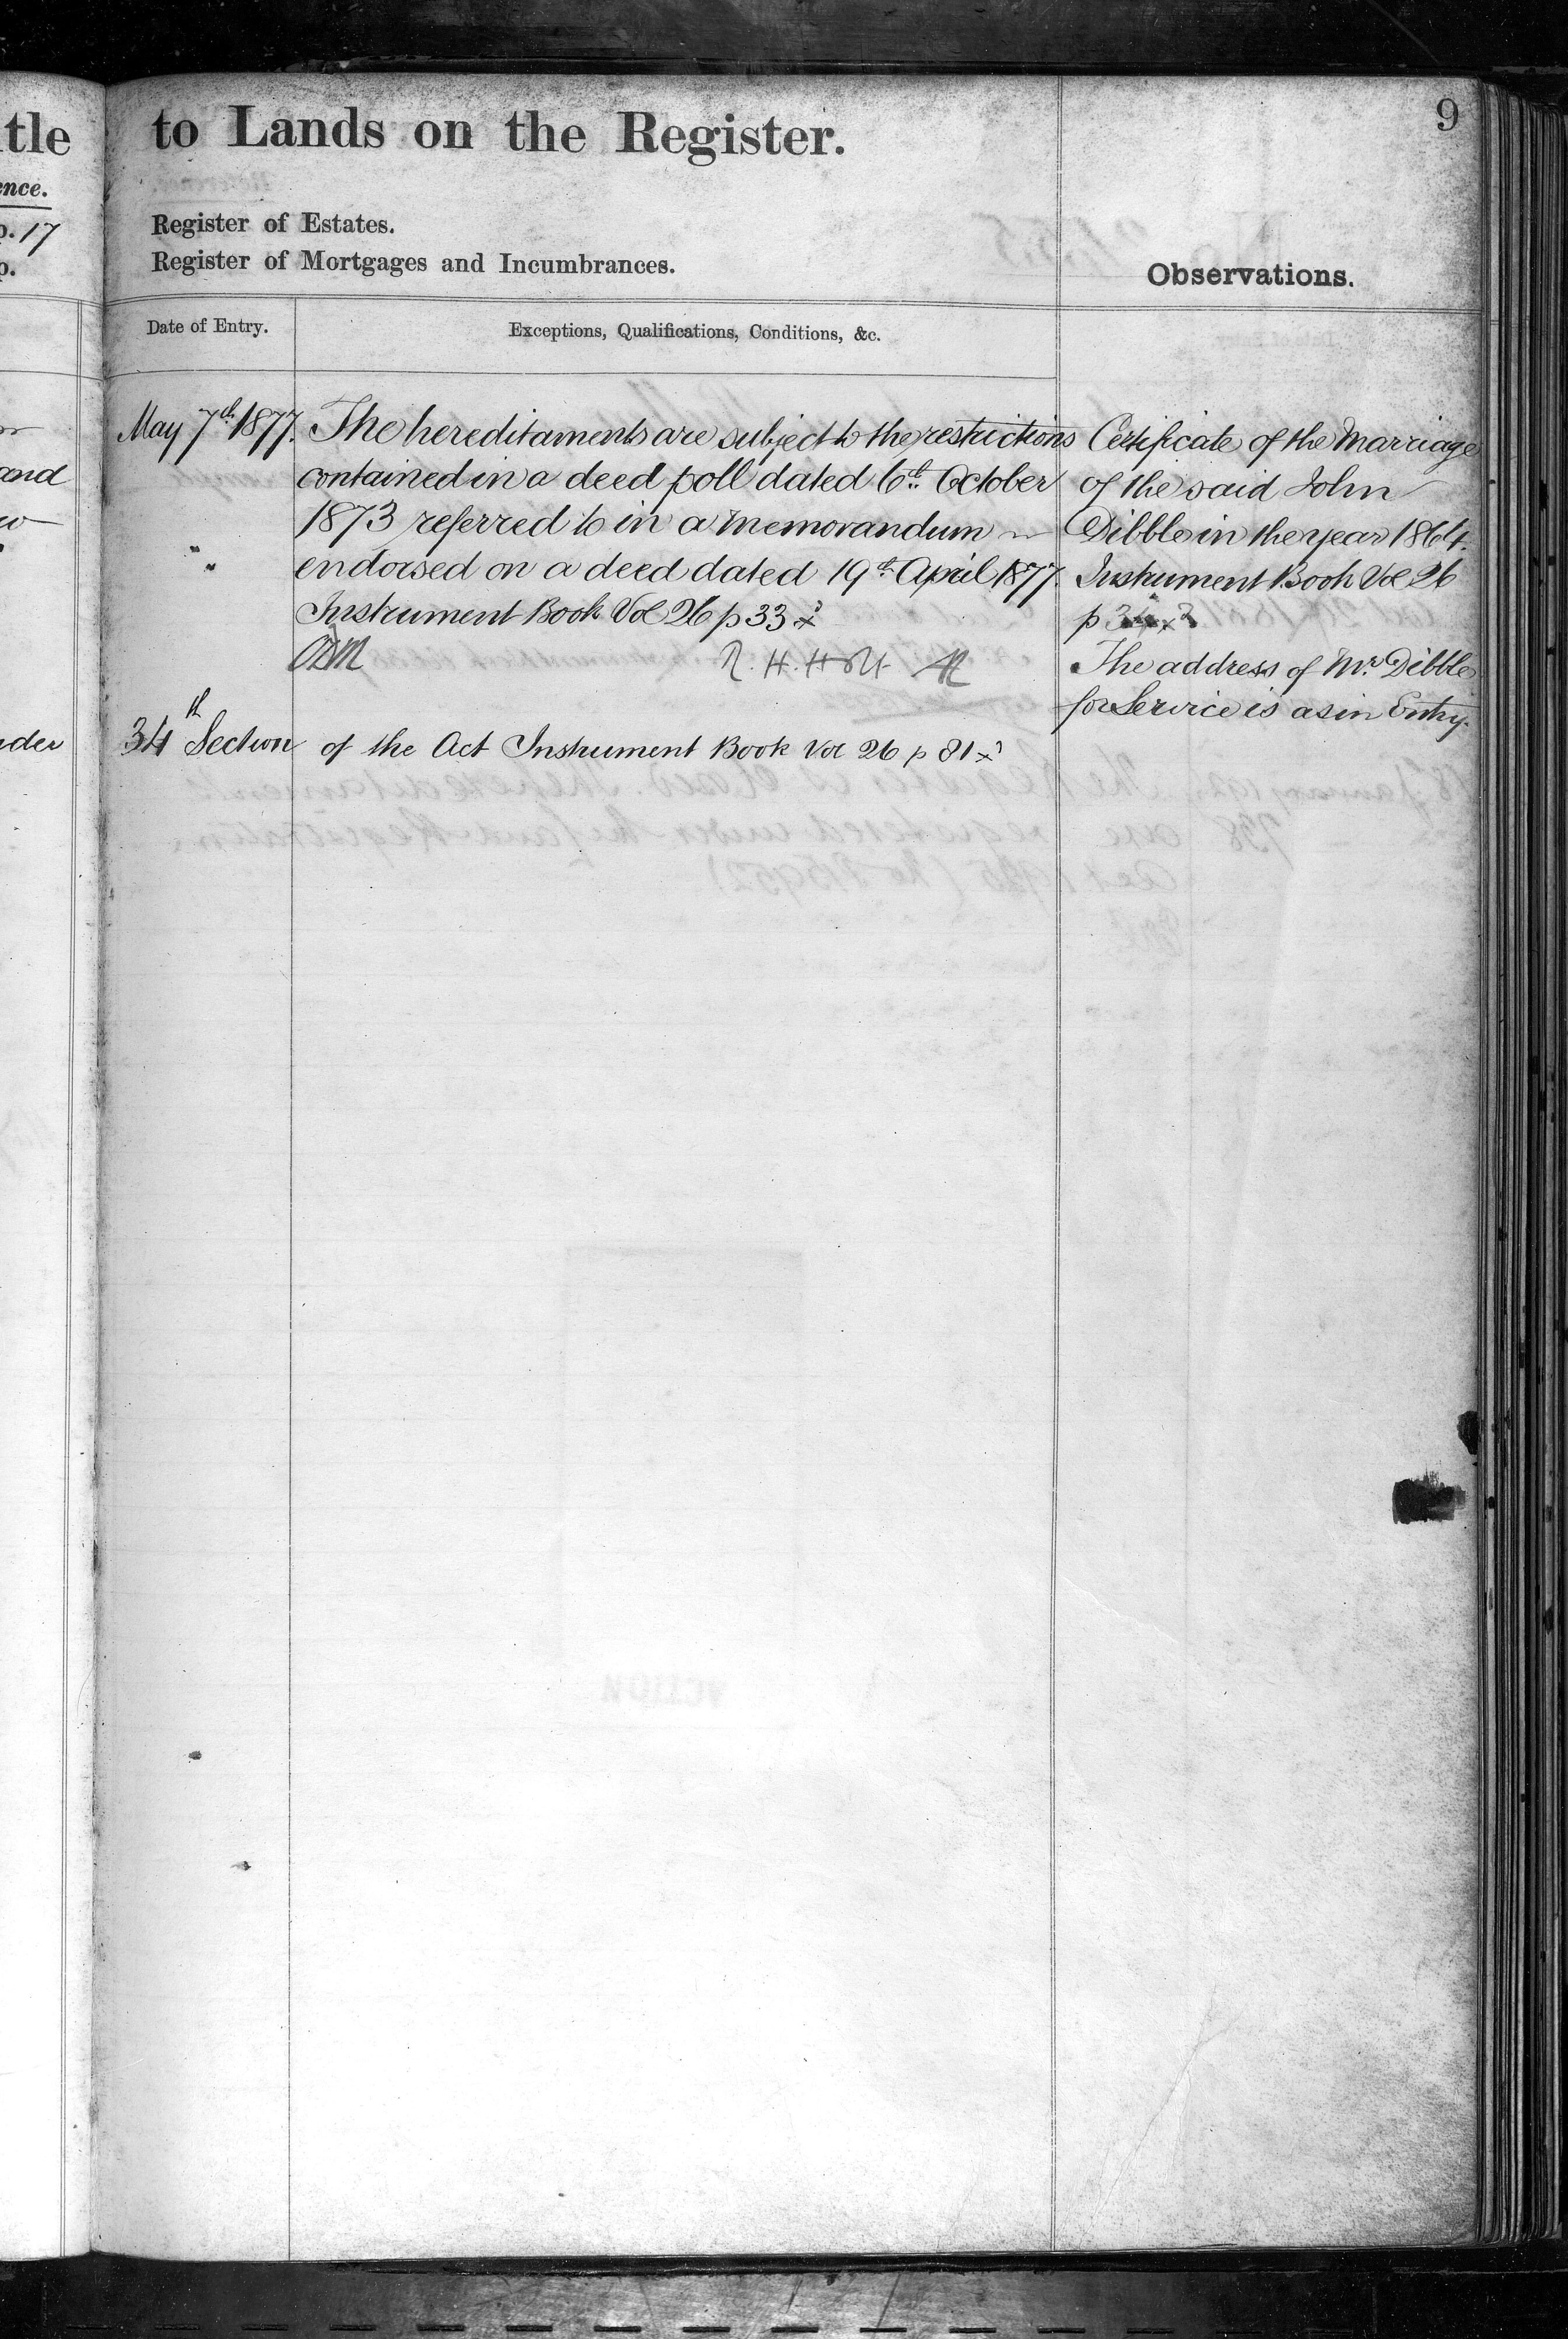 tle to Lands on the Register.
9
ence.
p. 17
p.
Register of Estates.
Register of Mortgages and Incumbrances.
Observations.
Date of Entry.
Exceptions, Qualifications, Conditions, &c.
and
May 7th 1877. The hereditaments are subject to the restrictions
contained in a deed poll dated 6th October
1873 referred to in a memorandum
" endorsed on a deed dated 19th April 1877.
" Instrument Book Vol 26 p 33
R. H. Holt
34th Section of the Act Instrument Book Vol 26 p 81
Certificate of the Marriage
of the said John
Dibble in the year 1864.
Instrument Book Vol 26
p 34
The address of Mr. Dibble
for Service is as in Entry.